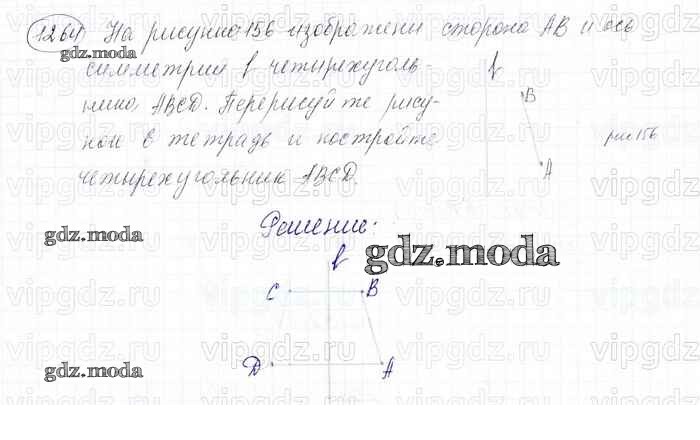 1264) На рисунке 156 изображены сторона AB и ось
симметрии f четырехуголь-
ника ABCD. Перерисуйте рису-
нок в тетрадь и постройте
четырехугольник ABCD.
f
B
A
рис 156
Решение:
f
C B
D A
gdz.moda
gdz.moda
gdz.moda
gdz.moda
vipgdz.ru